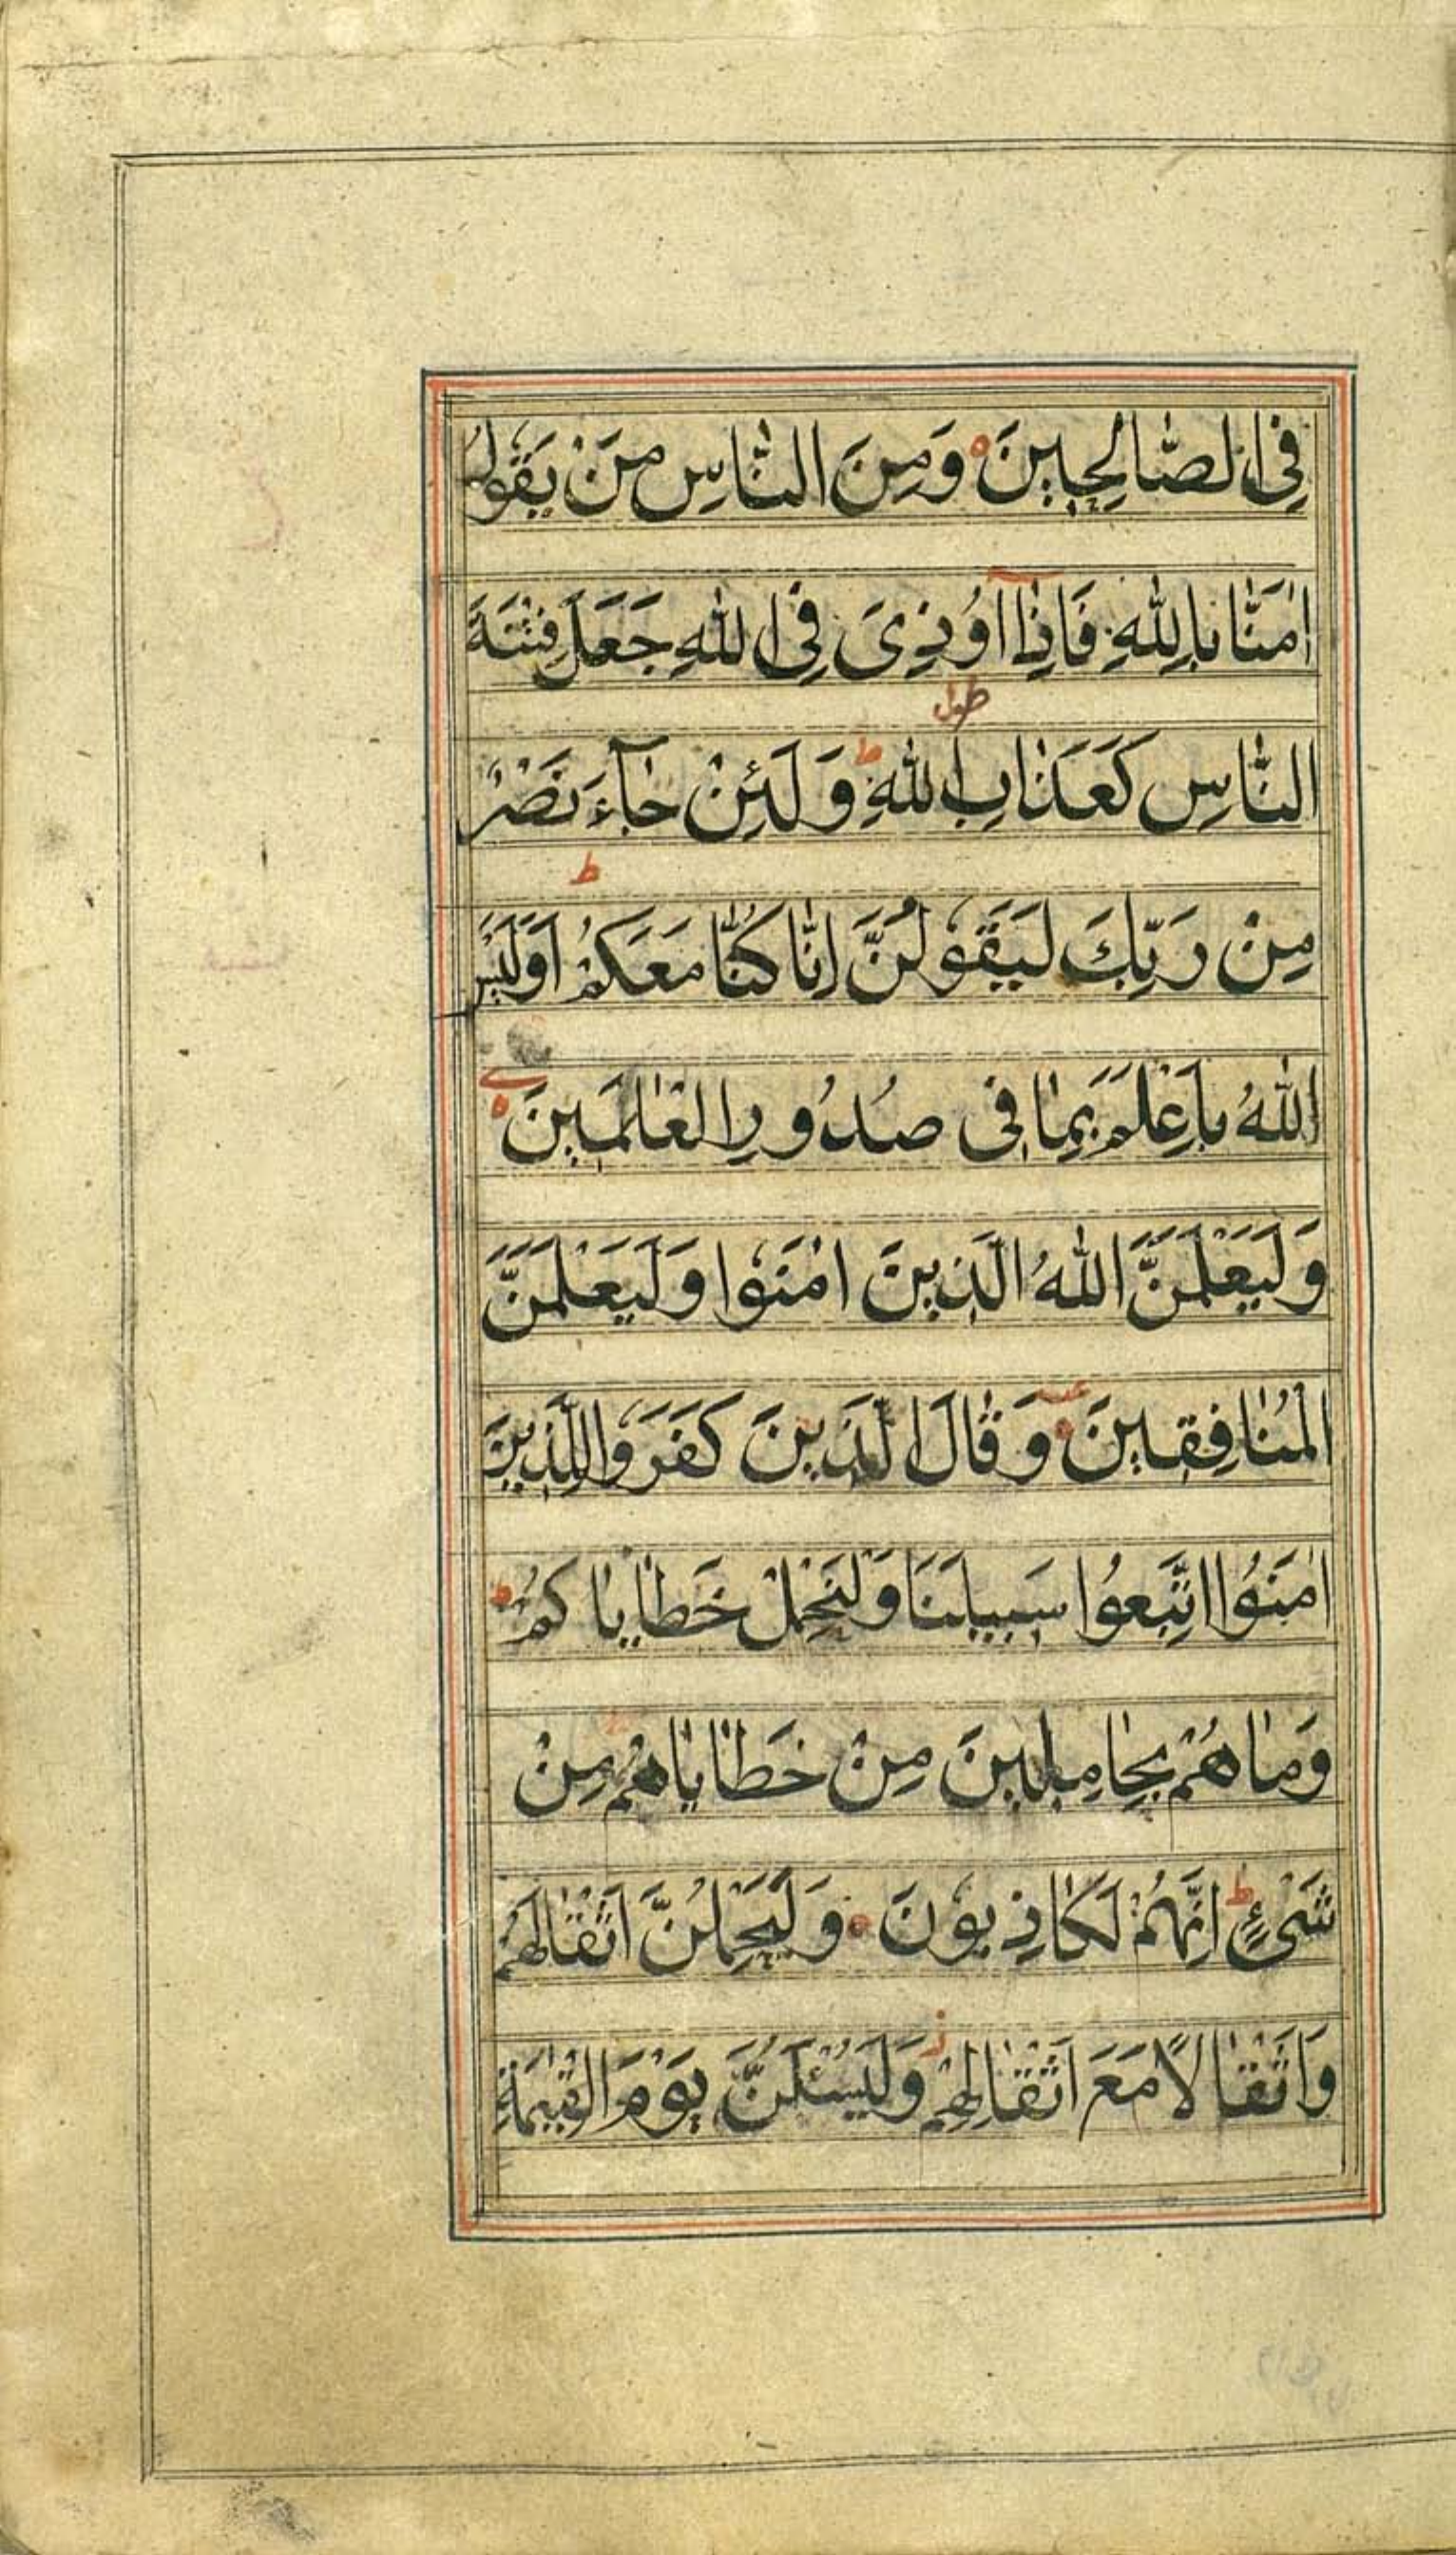 فِى الصَّالِحِينَ ه وَمِنَ النَّاسِ مَنْ يَقُولُ
اٰمَنَّا بِاللّٰهِ فَاِذَآ اُوذِىَ فِى اللّٰهِ جَعَلَ فِتْنَةَ
طول
النَّاسِ كَعَذَابِ اللّٰهِ ط وَلَئِنْ جَآءَ نَصْرٌ
ط
مِنْ رَبِّكَ لَيَقُولُنَّ اِنَّا كُنَّا مَعَكُمْ اَوَلَيْسَ
اللّٰهُ بِاَعْلَمَ بِمَا فِى صُدُورِ الْعَالَمِينَ ه
وَلَيَعْلَمَنَّ اللّٰهُ الَّذِينَ اٰمَنُوا وَلَيَعْلَمَنَّ
الْمُنَافِقِينَ ه وَقَالَ الَّذِينَ كَفَرُوا لِلَّذِينَ
اٰمَنُوا اتَّبِعُوا سَبِيلَنَا وَلْنَحْمِلْ خَطَايَاكُمْ ط
وَمَا هُمْ بِحَامِلِينَ مِنْ خَطَايَاهُمْ مِنْ
شَىْءٍ ط اِنَّهُمْ لَكَاذِبُونَ ه وَلَيَحْمِلُنَّ اَثْقَالَهُمْ
وَاَثْقَالًا مَعَ اَثْقَالِهِمْ ز وَلَيُسْئَلُنَّ يَوْمَ الْقِيٰمَةِ